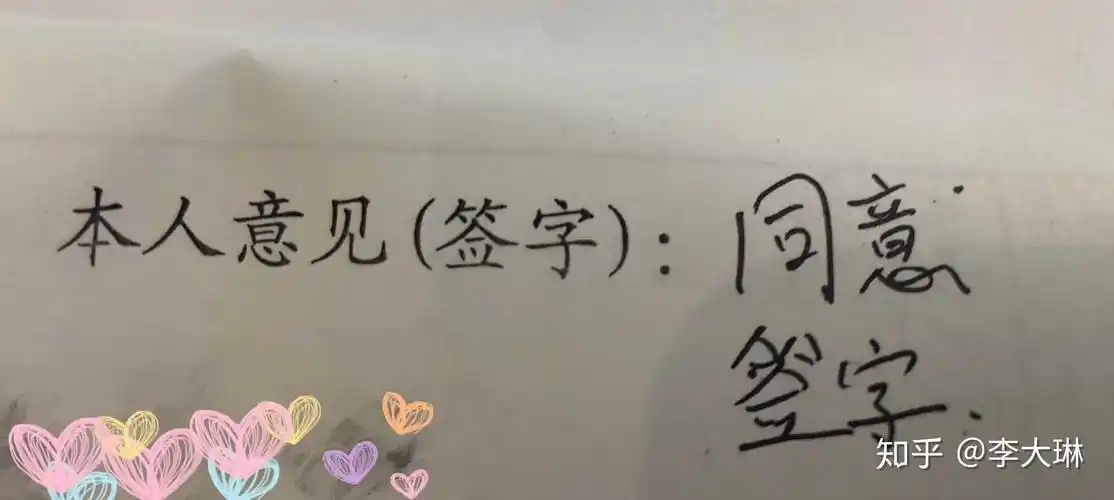 本人意见(签字)：同意.
签字.
知乎 @李大琳